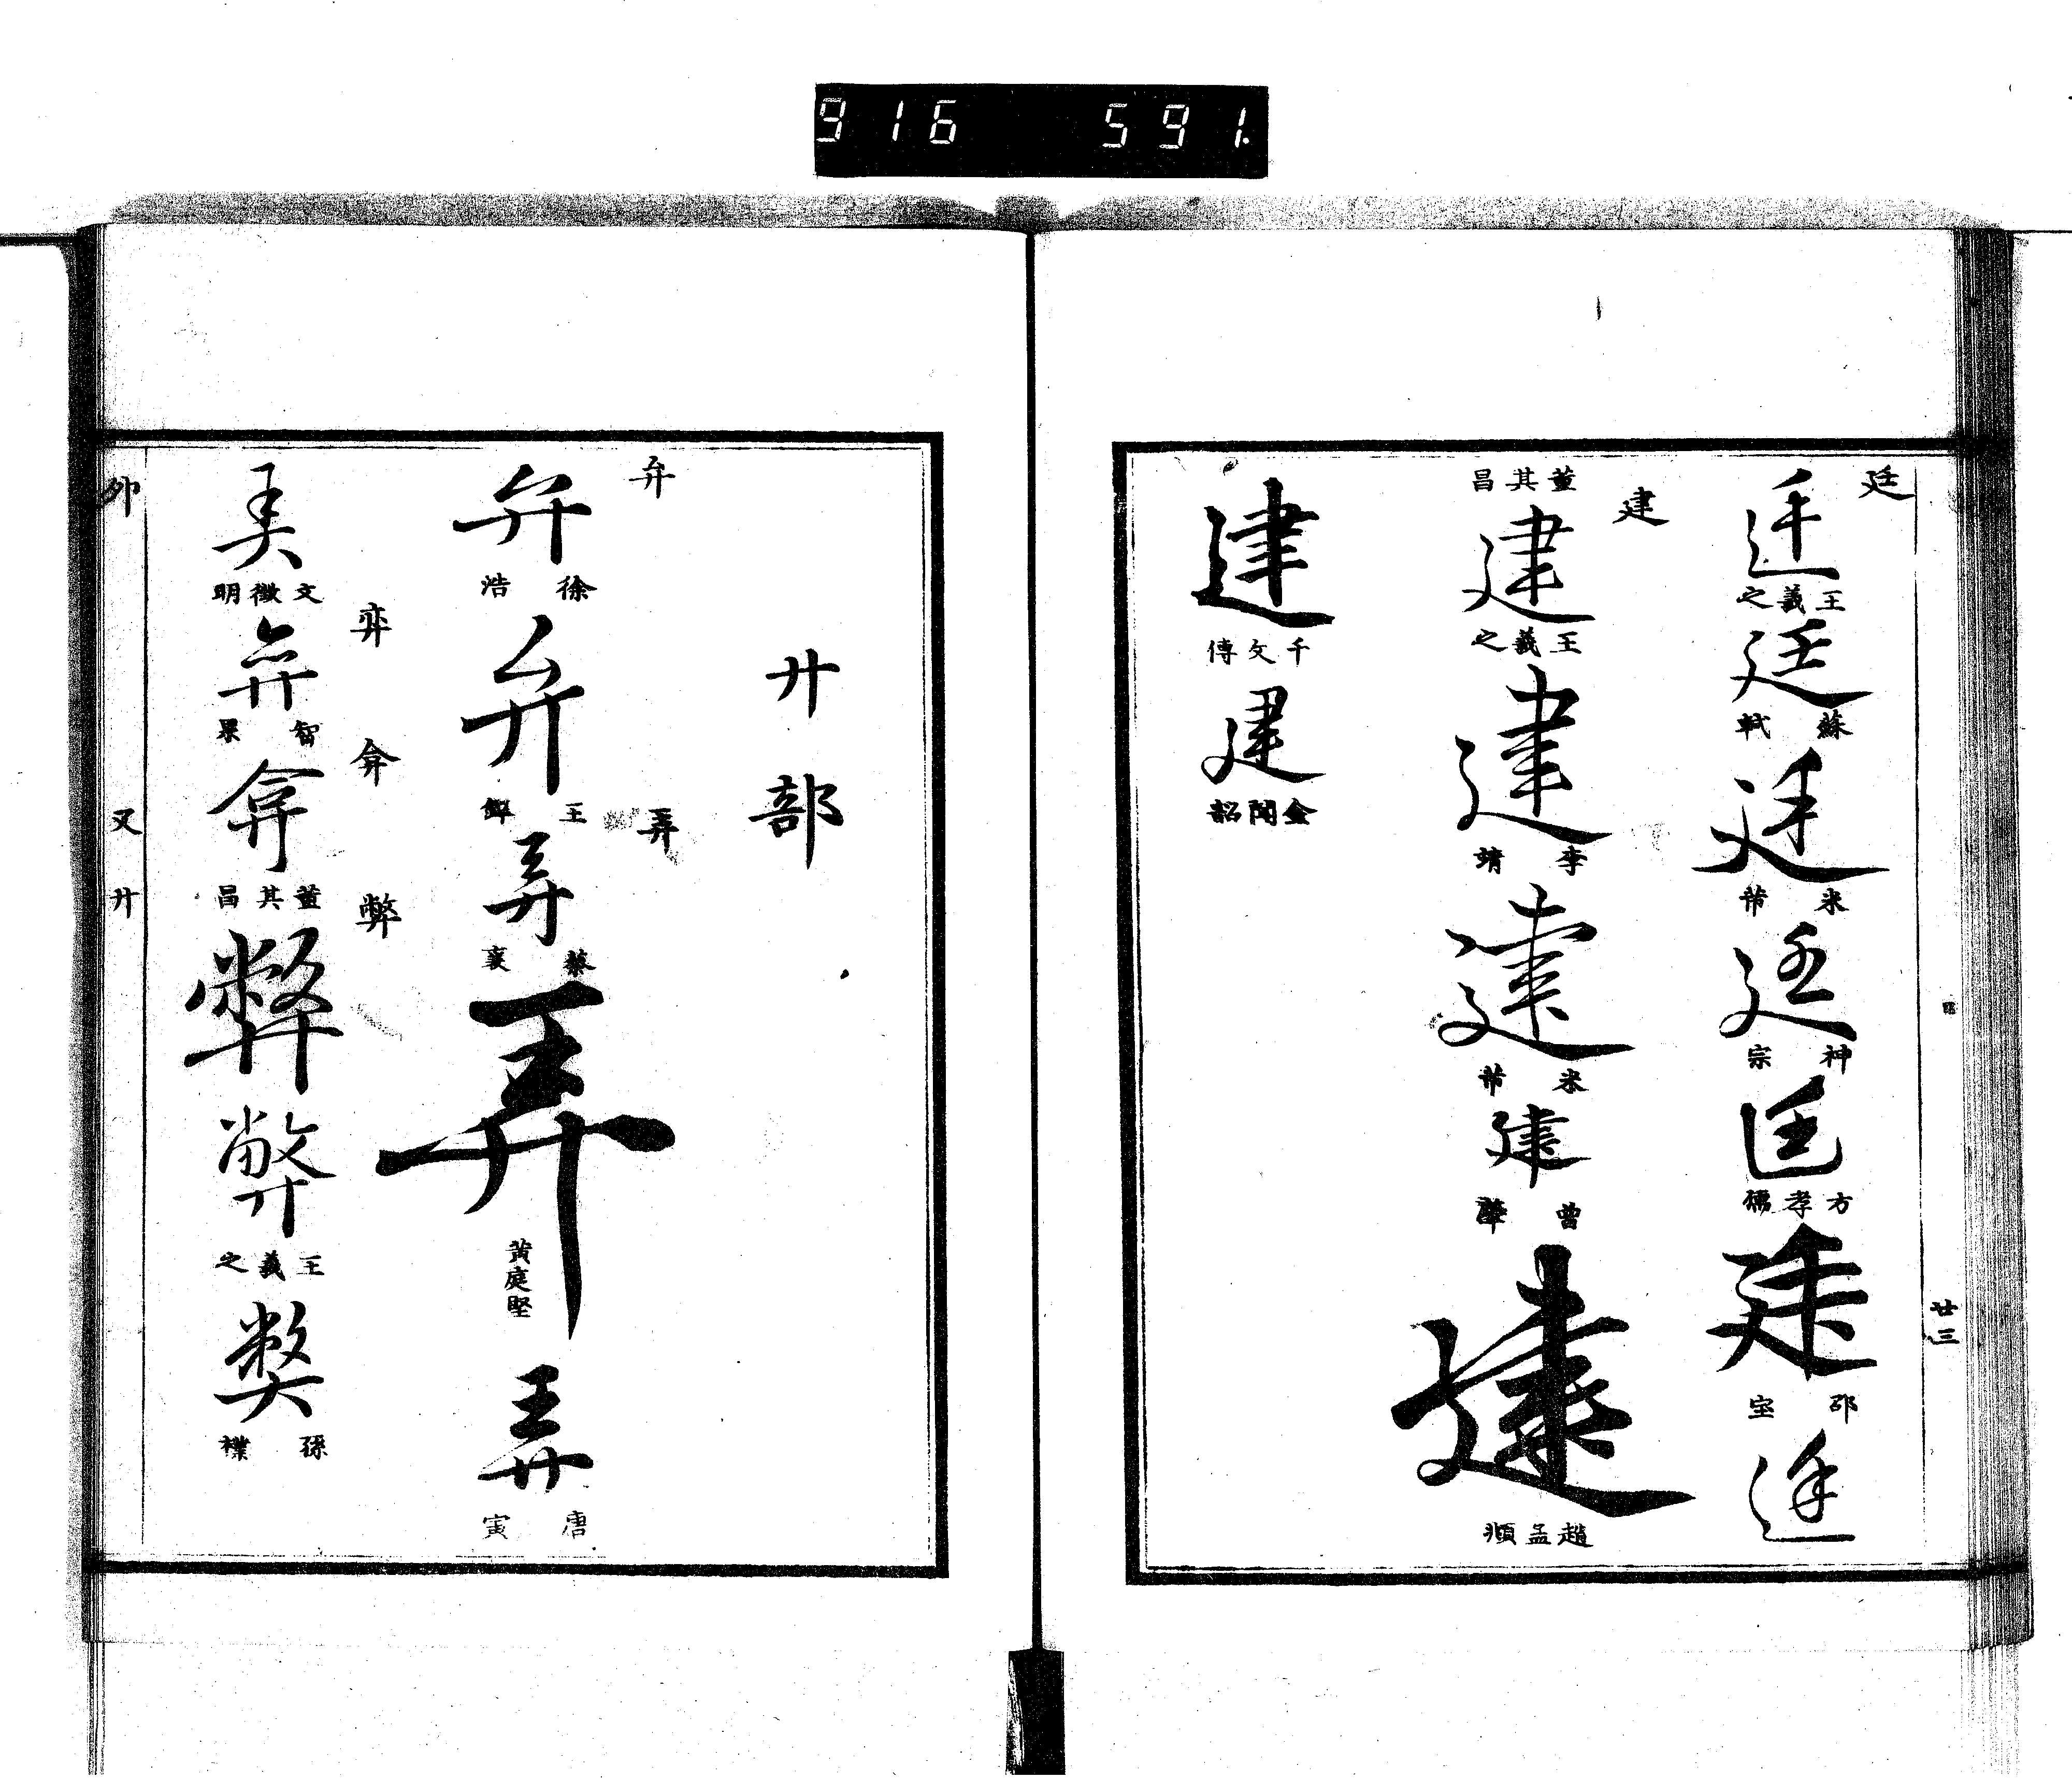 916 591.
廷
廷
王羲之
廷
蘇軾
廷
米芾
廷
神宗
廷
方孝孺
廷
邵宝
廷
董其昌
建
建
王羲之
建
李靖
建
米芾
建
曾肇
建
趙孟頫
建
千文傳
建
金闻韶
廿三
廾部
弁
弁
徐浩
弁
王鐸
弄
弄
蔡襄
弄
黃庭堅
弄
唐寅
弈
文徵明
弈
弈
智果
弇
弇
董其昌
弊
弊
弊
王羲之
弊
孫襆
卯
又廾